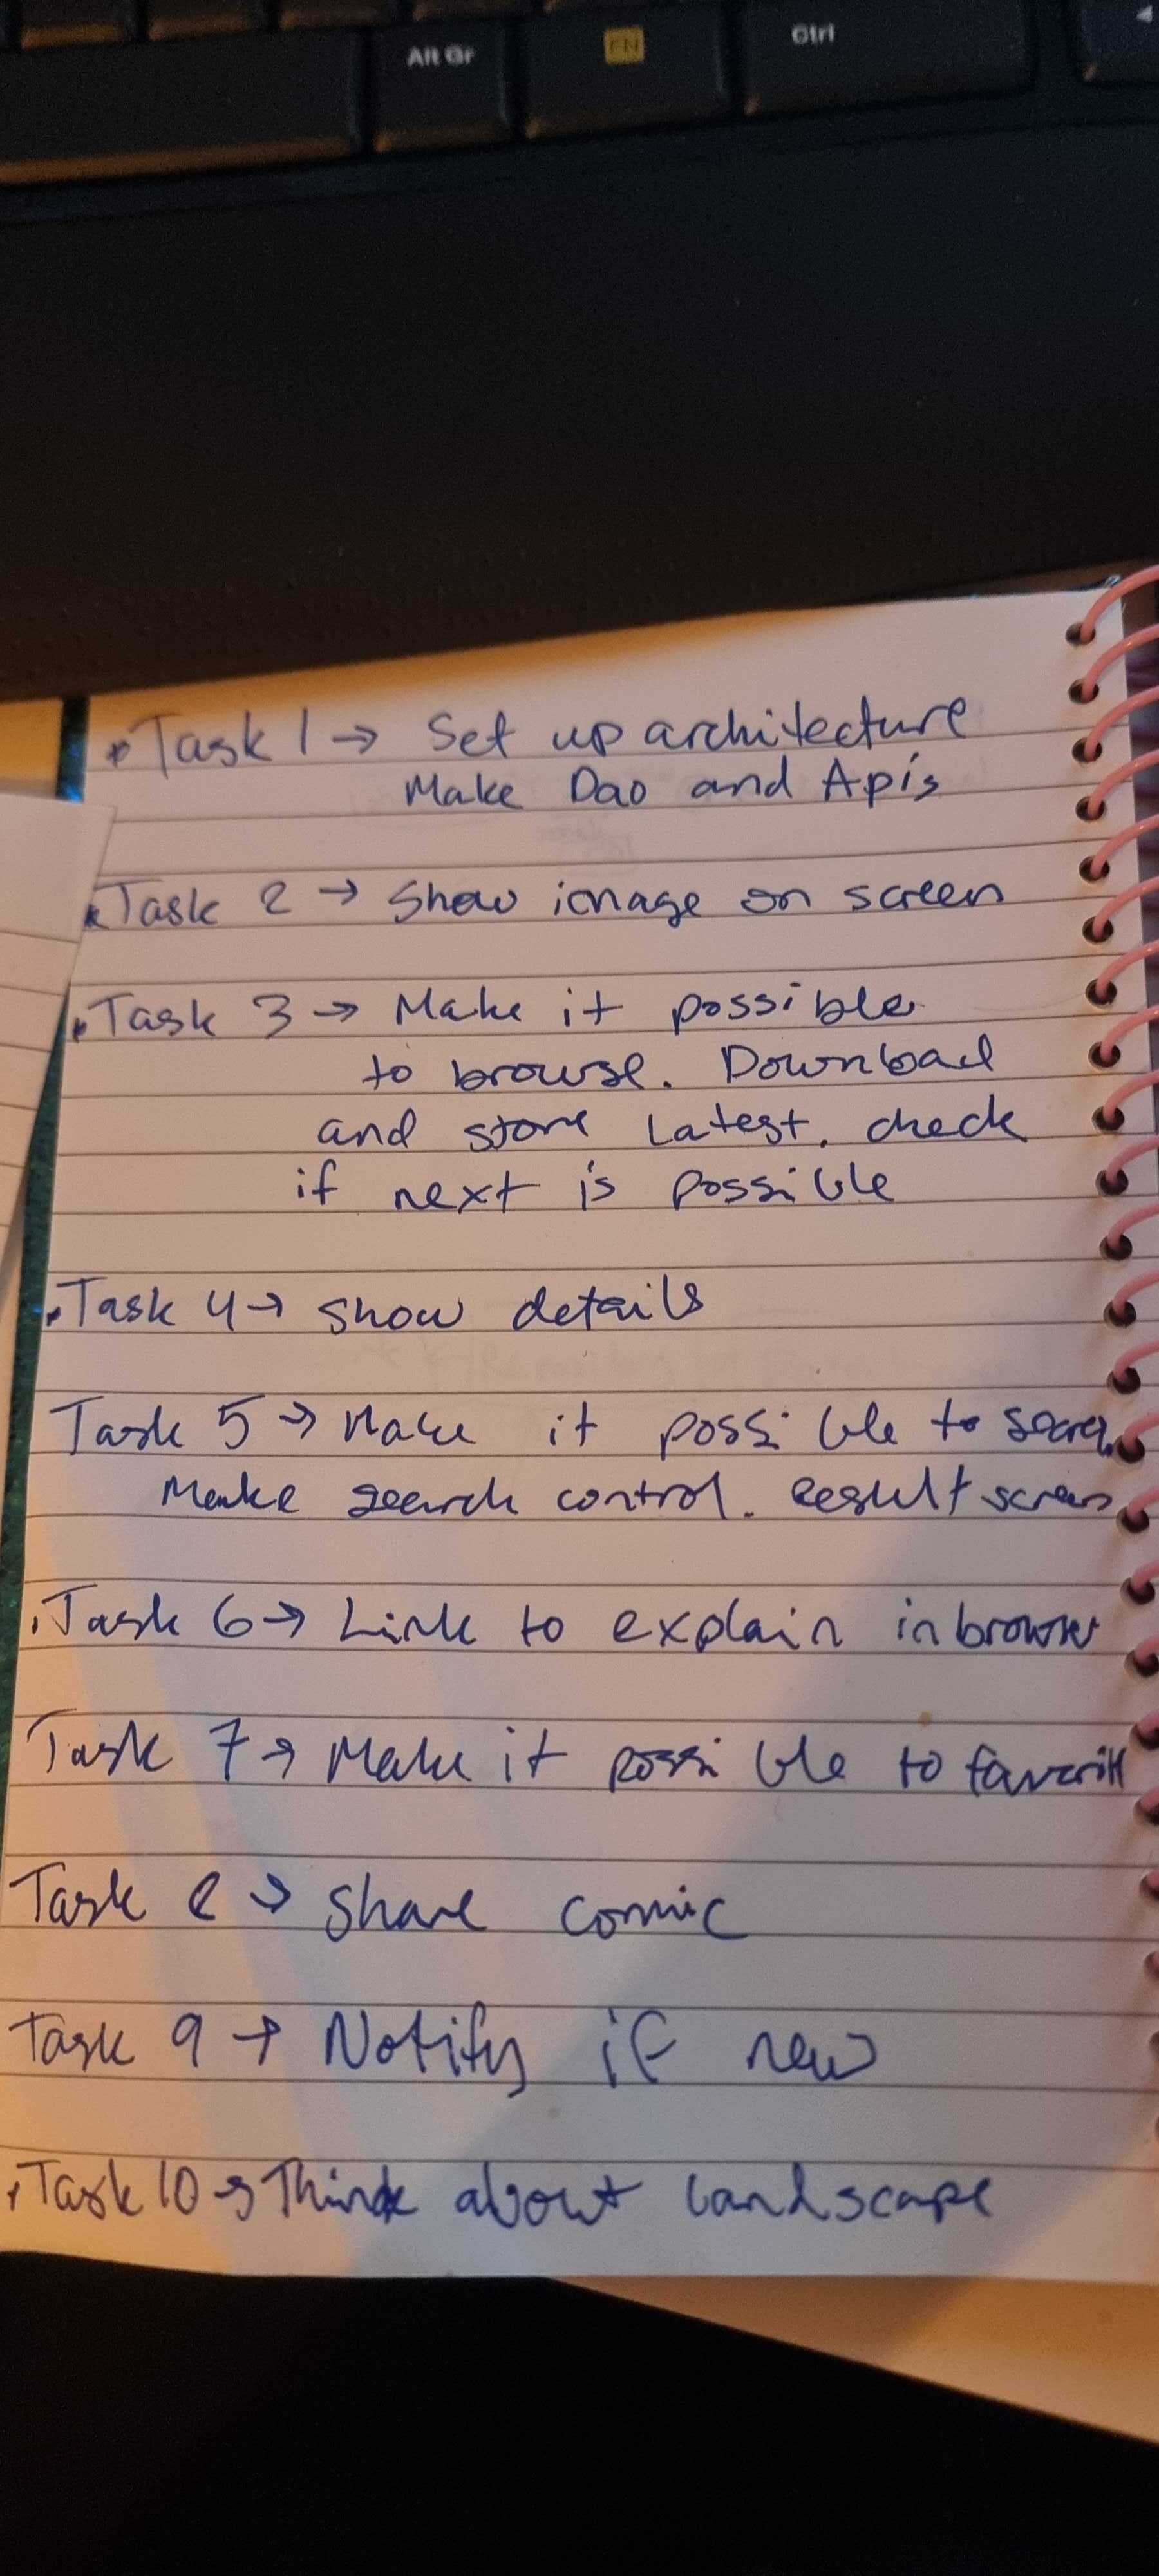 Alt Gr FN Ctrl
Task 1 → Set up architecture
Make Dao and Apis
Task 2 → Show image on screen
Task 3 → Make it possible
to browse. Download
and store Latest. check
if next is possible
Task 4 → show details
Task 5 → Make it possible to search
Make search control. Result screen
Task 6 → Link to explain in browser
Task 7 → Make it possible to favorite
Task 8 → Share comic
Task 9 → Notify if new
Task 10 → Think about landscape